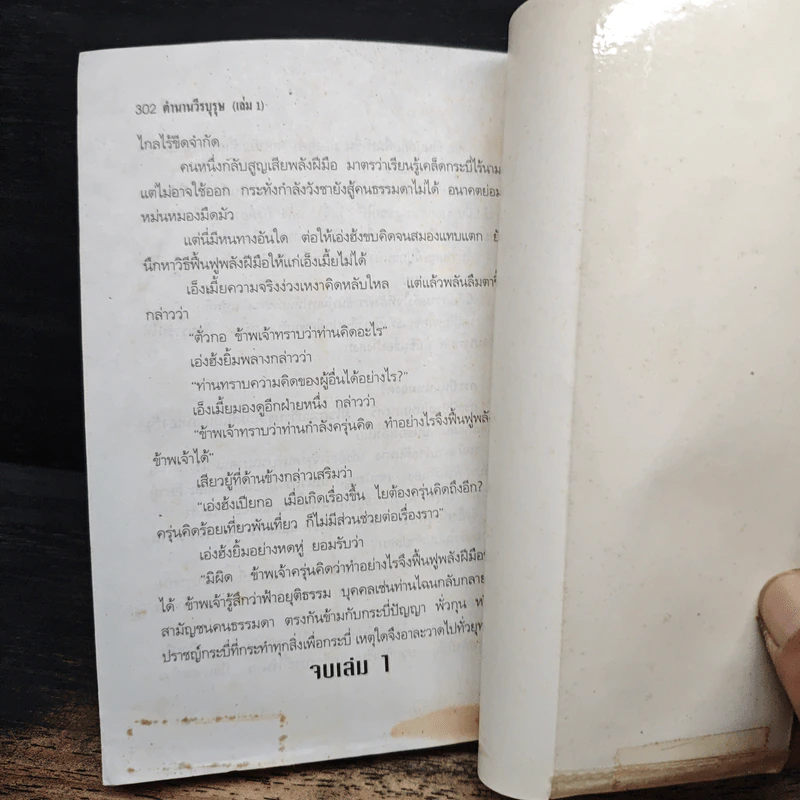 302 ตำนานวีรบุรุษ (เล่ม 1)
ไกลไร้ขีดจำกัด
คนหนึ่งกลับสูญเสียพลังฝีมือ มาตรว่าเรียนรู้เคล็ดกระบี่ไร้นาม
แต่ไม่อาจใช้ออก กระทั่งกำลังวังชายังสู้คนธรรมดาไม่ได้ อนาคตย่อม
หม่นหมองมืดมัว
แต่นี่มีหนทางอันใด ต่อให้เอ่งฮ้งขบคิดจนสมองแทบแตก
นึกหาวิธีฟื้นฟูพลังฝีมือให้แก่เอ็งเมี้ยไม่ได้
เอ็งเมี้ยความจริงง่วงเหงาคิดหลับใหล แต่แล้วพลันลืมตา
กล่าวว่า
"ตั่วกอ ข้าพเจ้าทราบว่าท่านคิดอะไร"
เอ่งฮ้งยิ้มพลางกล่าวว่า
"ท่านทราบความคิดของผู้อื่นได้อย่างไร?"
เอ็งเมี้ยมองดูอีกฝ่ายหนึ่ง กล่าวว่า
"ข้าพเจ้าทราบว่าท่านกำลังครุ่นคิด ทำอย่างไรจึงฟื้นฟูพลัง
ข้าพเจ้าได้"
เสียวยู้ที่ด้านข้างกล่าวเสริมว่า
"เอ่งฮ้งเปียกอ เมื่อเกิดเรื่องขึ้น ไยต้องครุ่นคิดถึงอีก?
ครุ่นคิดร้อยเที่ยวพันเที่ยว ก็ไม่มีส่วนช่วยต่อเรื่องราว"
เอ่งฮ้งยิ้มอย่างหดหู่ ยอมรับว่า
"มิผิด ข้าพเจ้าครุ่นคิดว่าทำอย่างไรจึงฟื้นฟูพลังฝีมือ
ได้ ข้าพเจ้ารู้สึกว่าฟ้าอยุติธรรม บุคคลเช่นท่านไฉนกลับกลาย
สามัญชนคนธรรมดา ตรงกันข้ามกับกระบี่ปัญญา พั่วกุน
ปราชญ์กระบี่ที่กระทำทุกสิ่งเพื่อกระบี่ เหตุใดจึงอาละวาดไปทั่วยุท
จบเล่ม 1